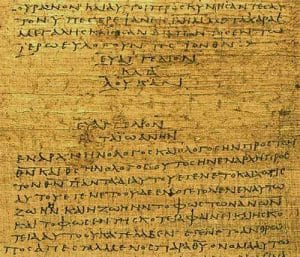 ΟΥΡΑΝΟΝ ΚΑΙ ΑΥΤΟΙ ΠΡΟϹΚΥΝΗϹΑΝΤΕϹ ΑΥ
ΤΟΝ ΥΠΕϹΤΡΕΨΑΝ ΜΕΤΑ ΧΑΡΑϹ
ΜΕΓΑΛΗϹ ΚΑΙ ΗϹΑΝ ΔΙΑ ΠΑΝΤΟϹ ΕΝ ΤΩ
ΙΕΡΩ ΕΥΛΟΓΟΥΝΤΕϹ ΤΟΝ ΘΝ
ΕΥΑΓΓΕΛΙΟΝ
ΚΑΤΑ
ΛΟΥΚΑΝ
ΕΥΑΓΓΕΛΙΟΝ
ΚΑΤΑ ΙΩΑΝΗΝ
ΕΝ ΑΡΧΗ ΗΝ Ο ΛΟΓΟϹ ΚΑΙ Ο ΛΟΓΟϹ ΗΝ ΠΡΟϹ ΤΟΝ
ΘΝ ΚΑΙ ΘϹ ΗΝ Ο ΛΟΓΟϹ ΟΥΤΟϹ ΗΝ ΕΝ ΑΡΧΗ ΠΡΟϹ
ΤΟΝ ΘΝ ΠΑΝΤΑ ΔΙ ΑΥΤΟΥ ΕΓΕΝΕΤΟ ΚΑΙ ΧΩΡΙϹ
ΑΥΤΟΥ ΕΓΕΝΕΤΟ ΟΥΔΕ ΕΝ Ο ΓΕΓΟΝΕΝ ΕΝ ΑΥΤΩ
ΖΩΗ ΗΝ ΚΑΙ Η ΖΩΗ ΗΝ ΤΟ ΦΩϹ ΤΩΝ
ΚΑΙ ΤΟ ΦΩϹ ΕΝ ΤΗ ϹΚΟΤΕΙΑ ΦΑΙΝΕΙ ΚΑΙ Η ϹΚΟ
ΤΕΙΑ ΑΥΤΟ ΟΥ ΚΑΤΕΛΑΒΕΝ ΕΓΕΝΕΤΟ ΑΝΘΡΩ
ΠΟϹ ΑΠΕϹΤΑΛΜΕΝΟϹ ΠΑΡΑ ΘΥ ΟΝΟΜΑ ΑΥΤΩ